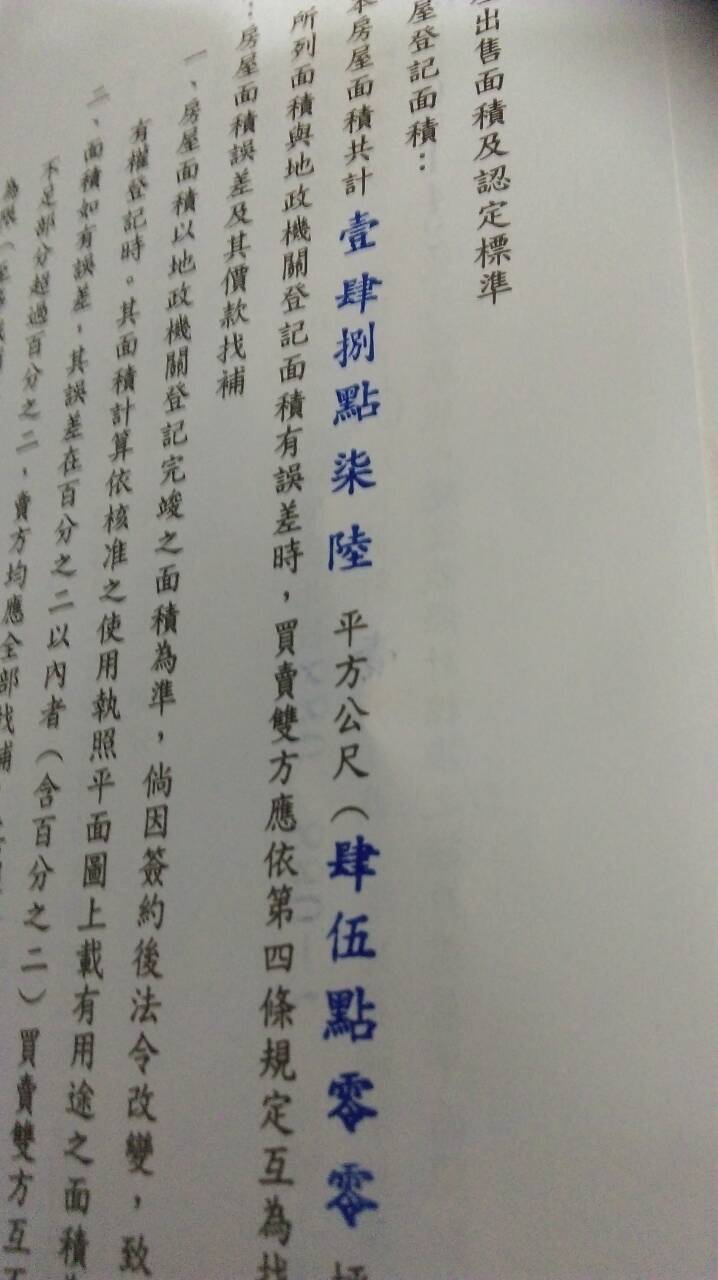 出售面積及認定標準
屋登記面積：
本房屋面積共計壹肆捌點柒陸平方公尺（肆伍點零零坪
所列面積與地政機關登記面積有誤差時，買賣雙方應依第四條規定互為找
：房屋面積誤差及其價款找補
一、房屋面積以地政機關登記完竣之面積為準，倘因簽約後法令改變，致
有權登記時。其面積計算依核准之使用執照平面圖上載有用途之面積為
二、面積如有誤差，其誤差在百分之二以內者（含百分之二）買賣雙方互不
不足部分超過百分之二，賣方均應全部找補
為限（